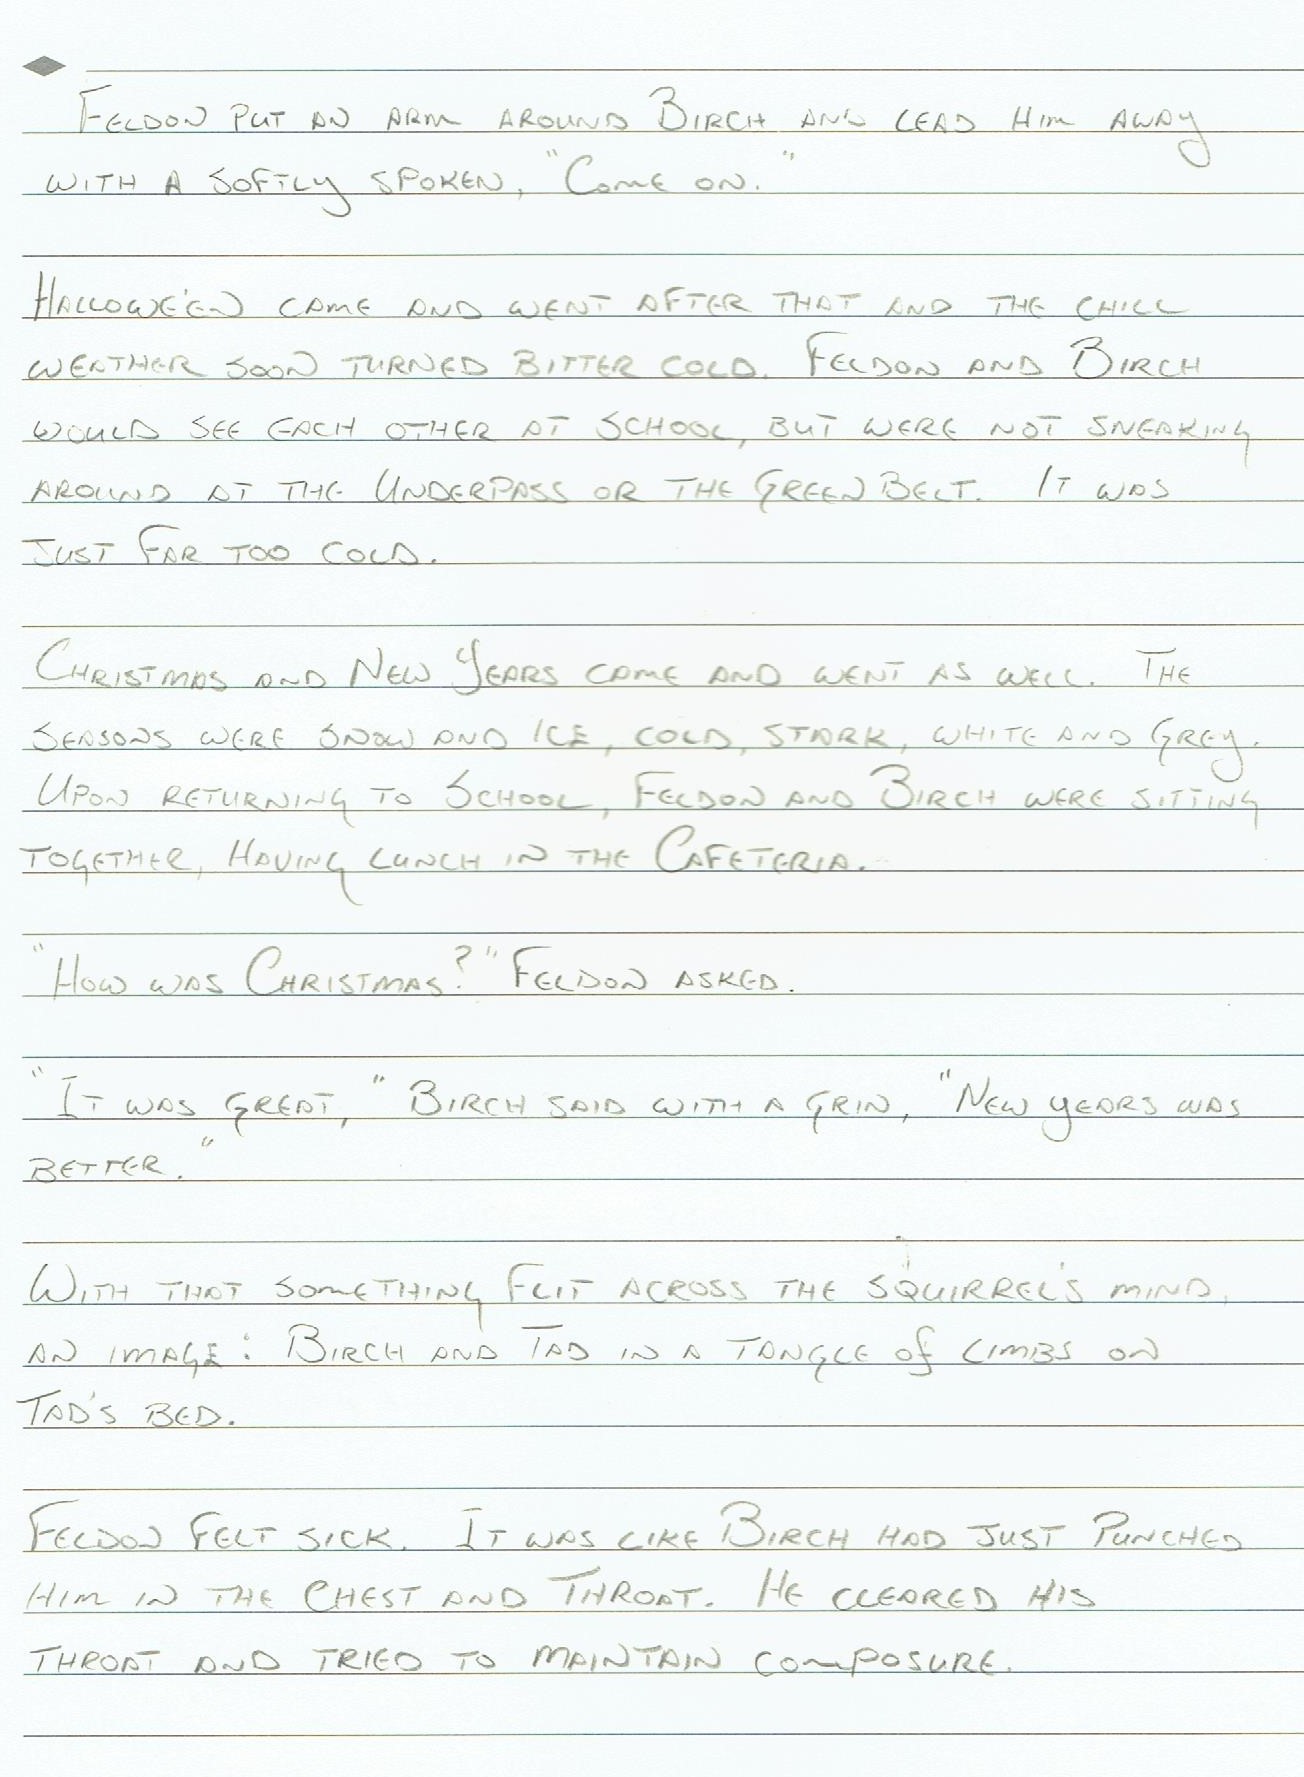 Feldon put an arm around Birch and lead him away
with a softly spoken, "Come on."
Hallowe'en came and went after that and the chill
weather soon turned bitter cold. Feldon and Birch
would see each other at school, but were not sneaking
around at the Underpass or the Green Belt. It was
just far too cold.
Christmas and New Years came and went as well. The
seasons were snow and ice, cold, stark, white and grey.
Upon returning to School, Feldon and Birch were sitting
together, having lunch in the Cafeteria.
"How was Christmas?" Feldon asked.
"It was great," Birch said with a grin, "New years was
better."
With that something flit across the squirrel's mind,
an image: Birch and Tad in a tangle of limbs on
Tad's bed.
Feldon felt sick. It was like Birch had just punched
him in the chest and throat. He cleared his
throat and tried to maintain composure.